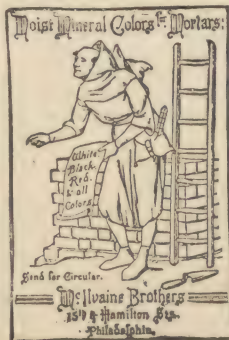 Moist Mineral Colors for Mortars:
White
Black
Red
& all
Colors
Send for Circular.
McIlvaine Brothers
15th & Hamilton Sts.
Philadelphia.